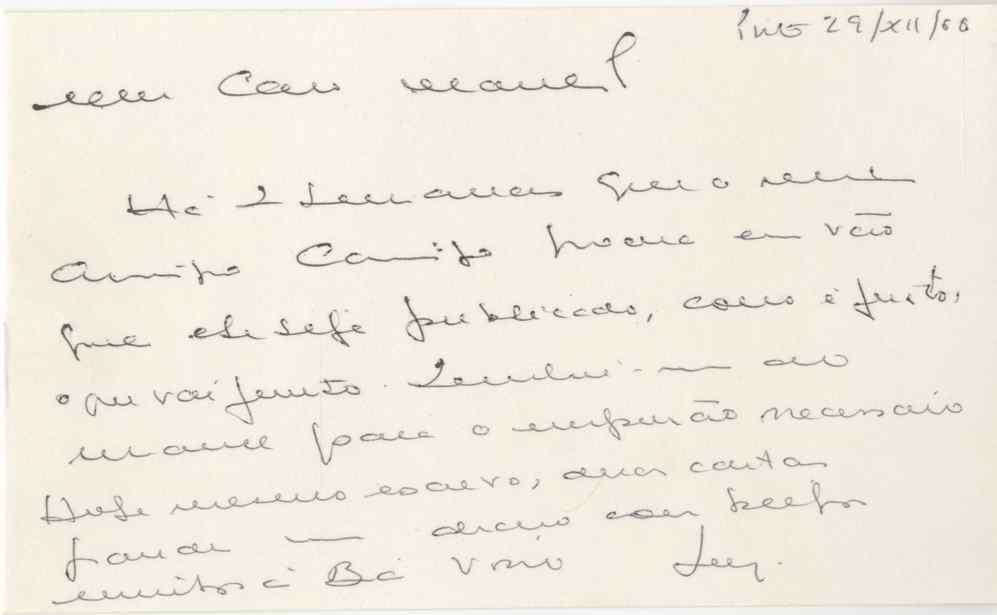 29/XII/66
meu Caro Manel
Há 2 semanas que o meu
amigo Camilo em vão
que ele seja publicado, como é justo,
o que vai junto. Lembrei-me do
Manel para o empurrão necessário
Hoje mesmo escrevo, duas cartas
com beijos
muitos à Bá Vosso